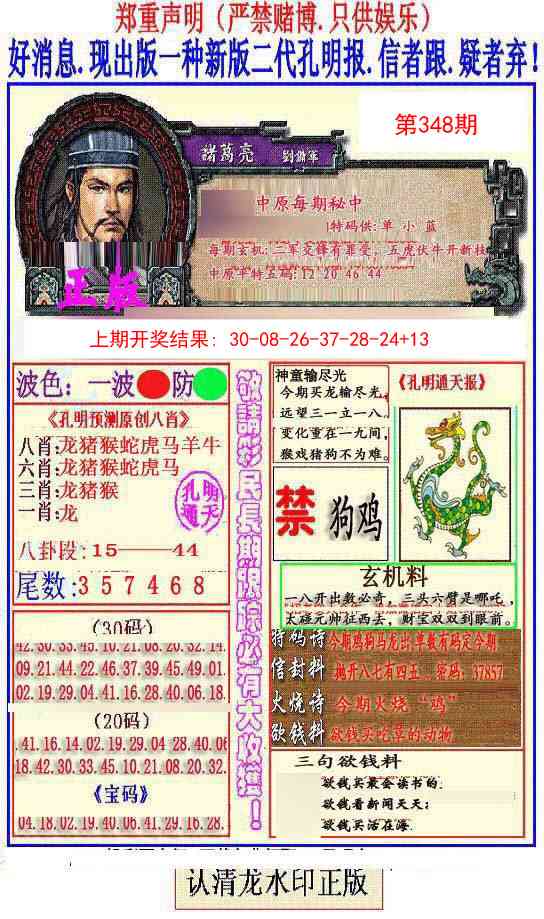 郑重声明（严禁赌博.只供娱乐）
好消息.现出版一种新版二代孔明报.信者跟.疑者弃!
第348期
諸葛亮 劉備軍
中原每期秘中
特码供:单 小 蓝
每期玄机:三军交锋有罪受，五虎伏牛开新枝
中原平特五码:12 20 46 44
正版
上期开奖结果: 30-08-26-37-28-24+13
波色：一波 防
《孔明预测原创八肖》
八肖:龙猪猴蛇虎马羊牛
六肖:龙猪猴蛇虎马
三肖:龙猪猴
一肖:龙
孔明
通天
八卦段:15——44
尾数:357468
(30码)
42.30.33.45.10.21.08.20.32.14.
09.21.44.22.46.37.39.45.49.01.
02.19.29.04.41.16.28.40.06.18.
(20码)
.41.16.14.02.19.29.04 28.40.06
18.42.30.33.45.10.21.08.20.32.
《宝码》
04.18.02.19.40.06.41.29.16.28.
敬請彩民長期跟踪必有大收獲！
神童输尽光
今期买龙输尽光，
远望三一立一八。
变化重在一九间，
猴戏猪狗不为难。
《孔明通天报》
禁 狗鸡
玄机料
一八开出数必奇，三头六臂是哪吒，
太碰元帅往西去，财宝双双到眼前。
特码诗 今期鸡狗马龙出单数有码定今期
信封料 抛开八七有四五 密码：37857
火烧诗 今期火烧“鸡”
欲钱料 欲钱买吃草的动物
三句欲钱料
欲钱买最会读书的.
欲钱看新闻天天;
欲钱买活在海.
认清龙水印正版